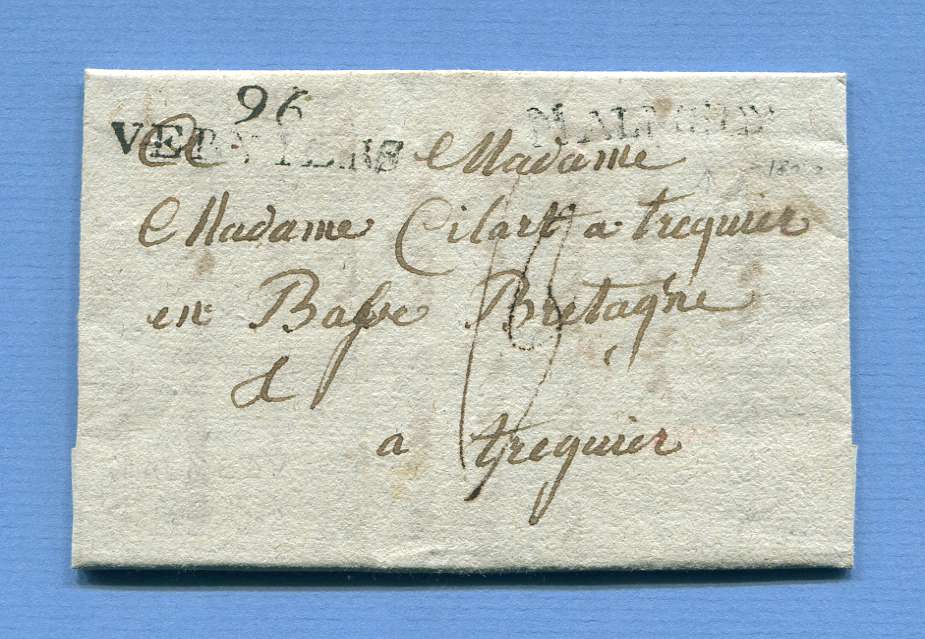 96
VERVIERS
MALMEDY
A Madame
Madame Cilart a treguier
en Basse Bretagne
a treguier